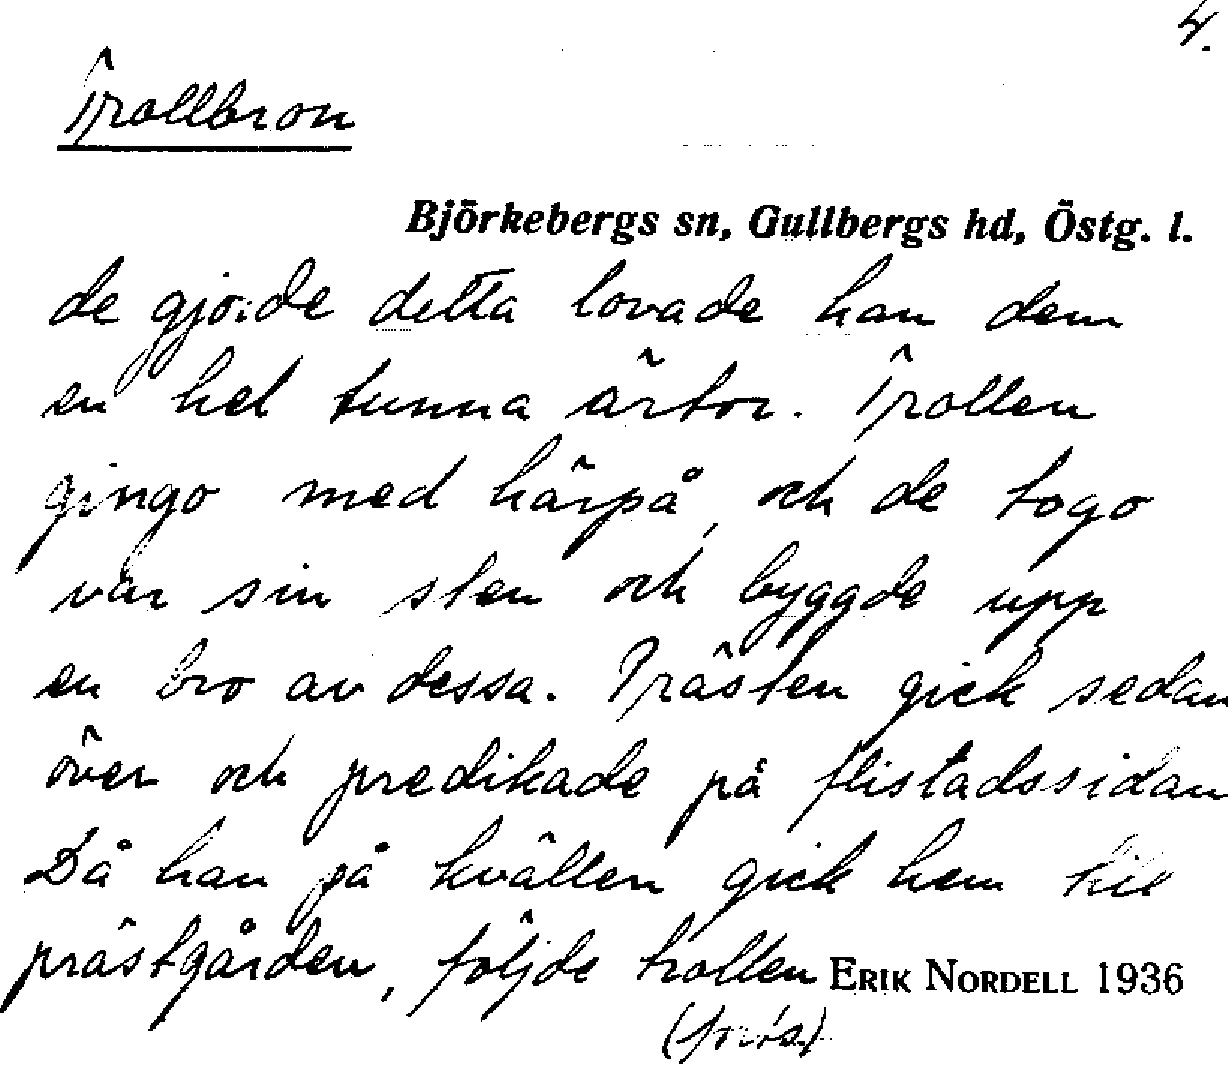 4.
Trollbron
Björkebergs sn, Gullbergs hd, Östg. l.
de gjorde detta lovade han dem
en hel tunna ärtor. Trollen
gingo med härpå, och de togo
var sin sten och byggde upp
en bro av dessa. Prästen gick sedan
över och predikade på flistadssidan
Då han på kvällen gick hem till
prästgården, följde trollen ERIK NORDELL 1936
(forts.)